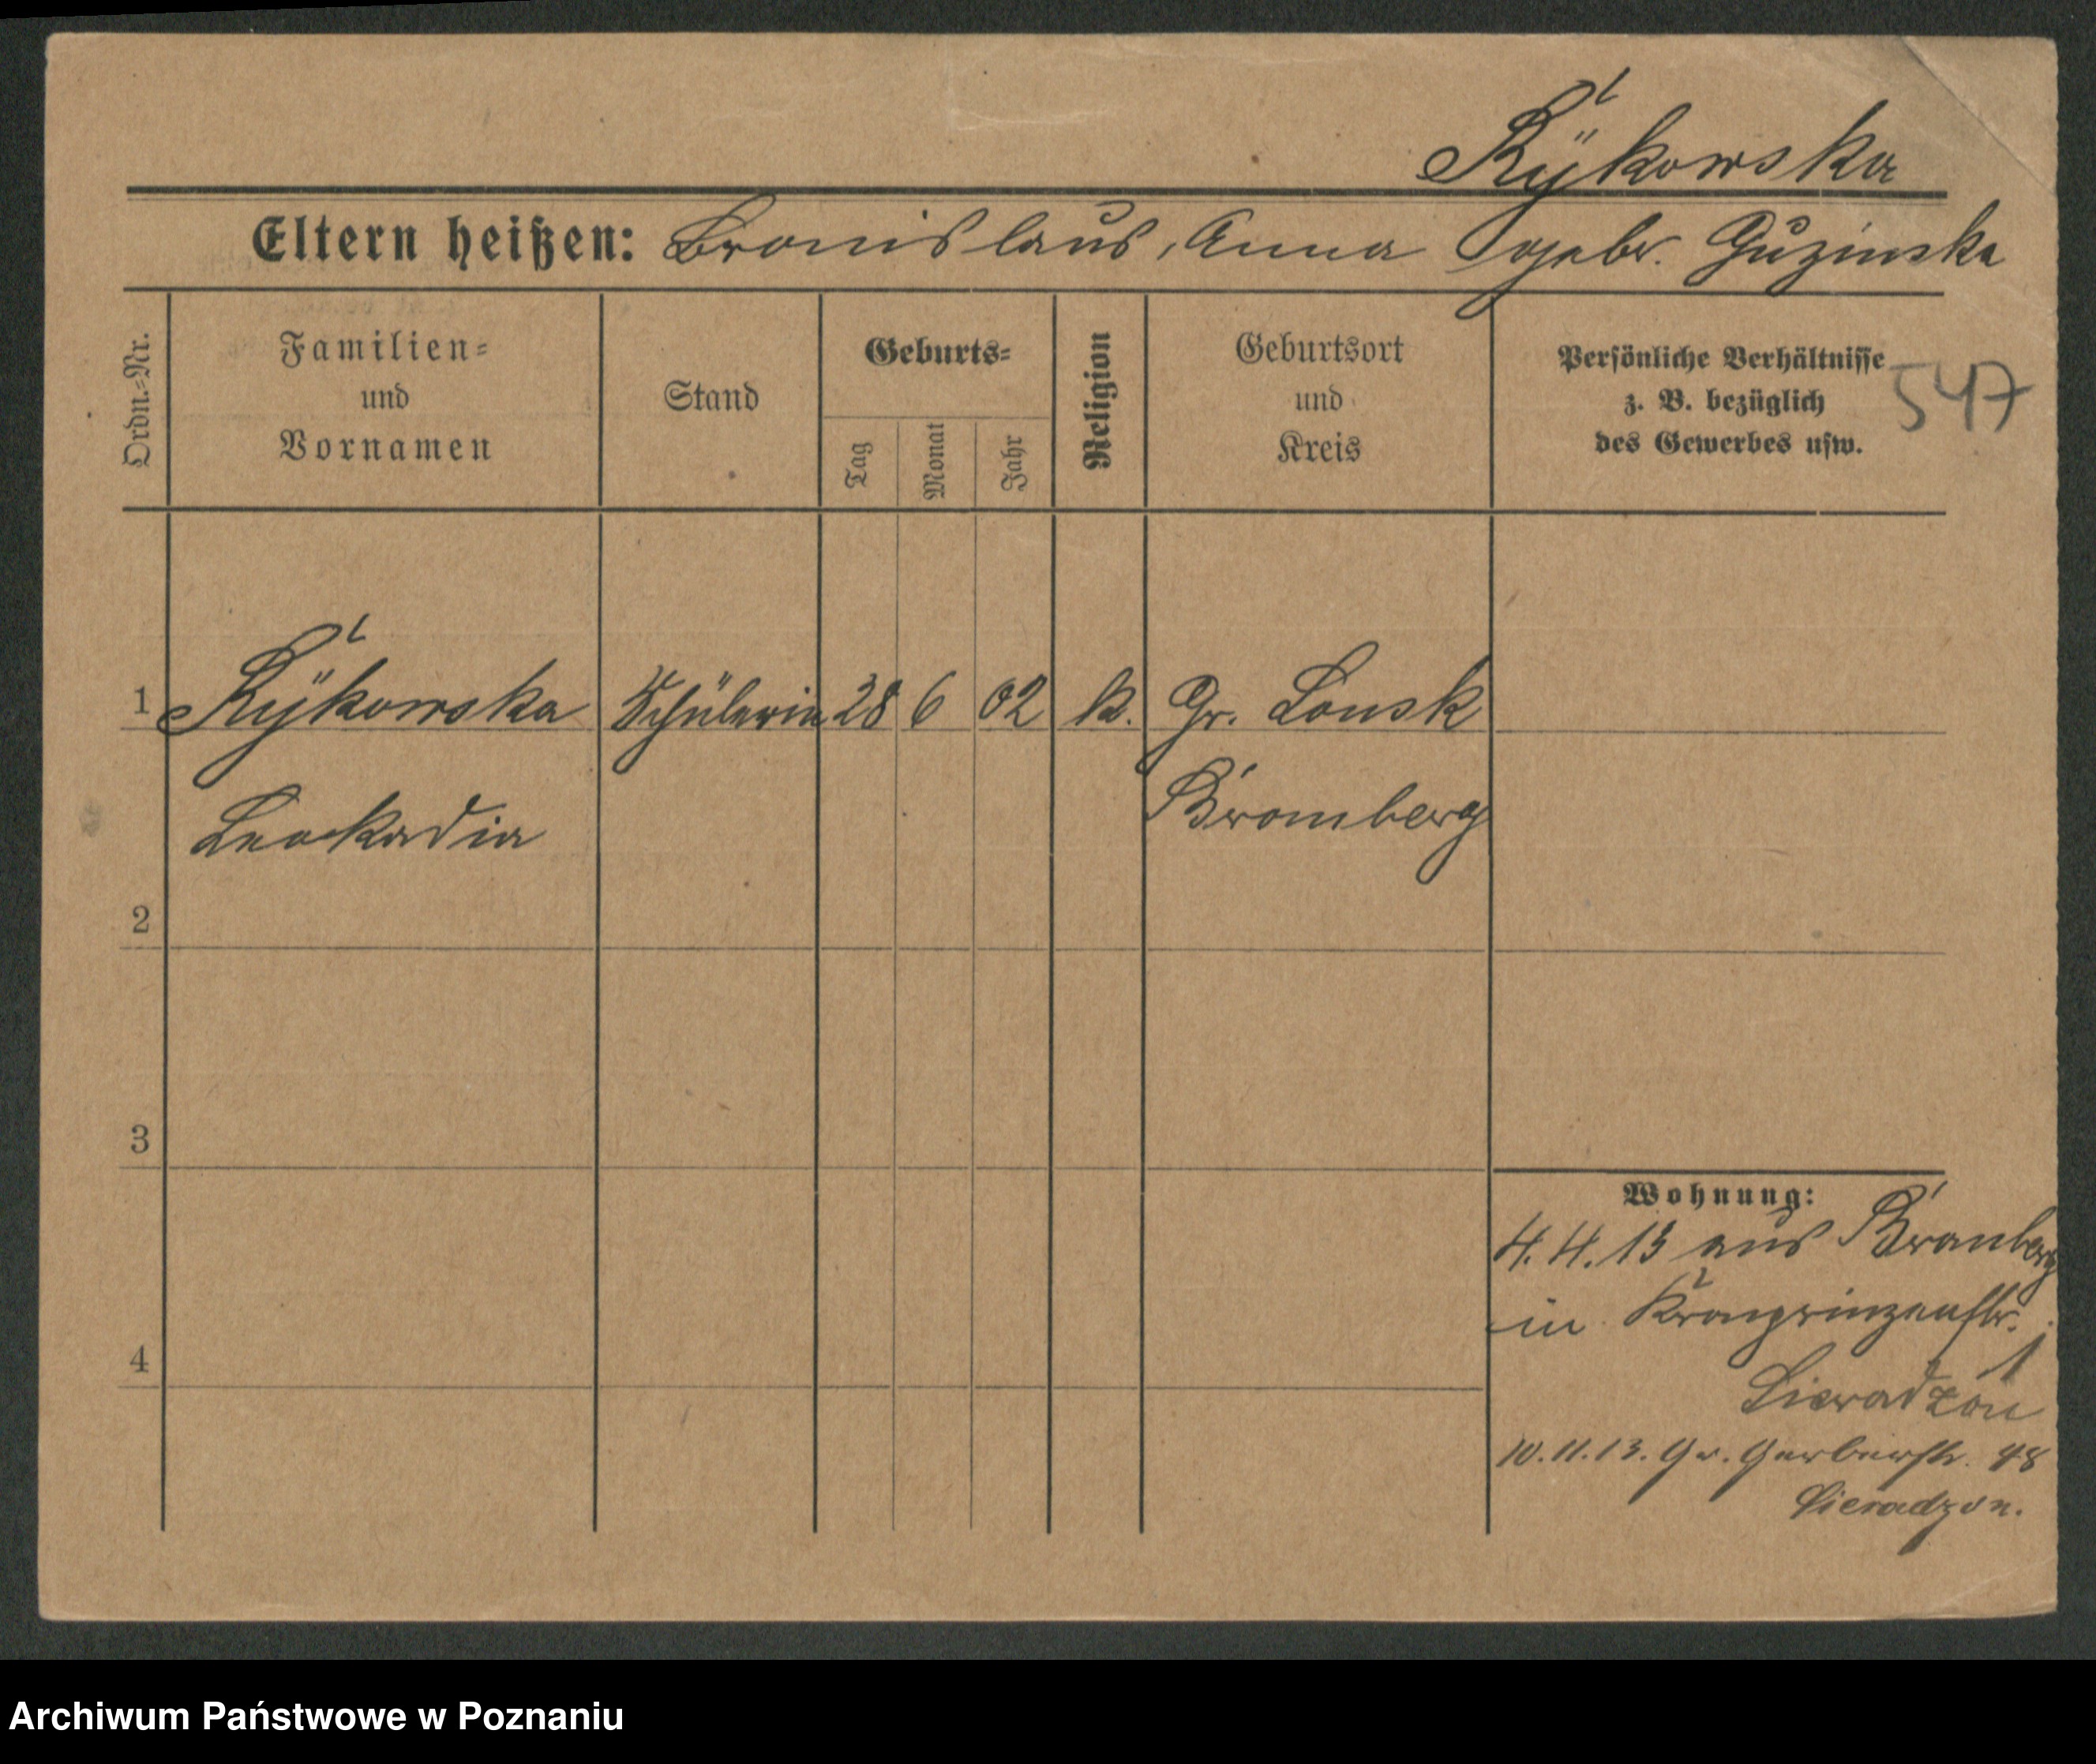 Rÿkowska
Eltern heißen: Bronislaus, Anna gebr. Guzinska
Ordn.-Nr.
Familien-
und
Vornamen
Stand
Geburts-
Tag
Monat
Jahr
Religion
Geburtsort
und
Kreis
Persönliche Verhältnisse
z. B. bezüglich
des Gewerbes usw.
547
1 Rÿkowska Schülerin 28 6 02 k. Gr. Lonsk
Leokadia Bromberg
2
3
4
Wohnung:
4.4.13 aus Bromberg
in Kronprinzenstr.
1
Sieradzon
10.11.13. Gr. Gerberstr. 48
Sieradzon.
Archiwum Państwowe w Poznaniu